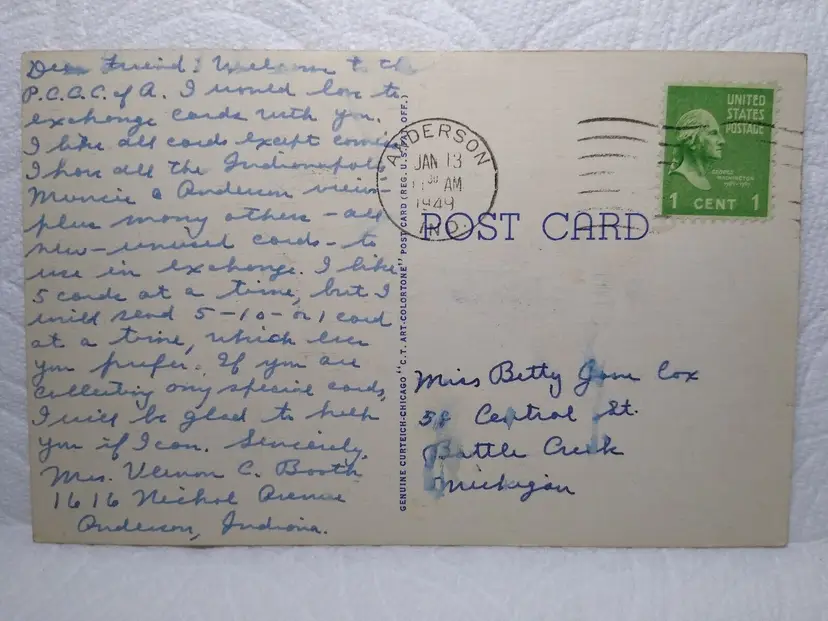 Dear Friend! Welcome to the
P.C.C.C. of A. I would love to
exchange cards with you.
I like all cards except comic
I have all the Indianapolis
Muncie & Anderson views
plus many others - all
new - unused cards - to
use in exchange. I like
5 cards at a time, but I
will send 5 - 10 - or 1 card
at a time, which ever
you prefer. If you are
collecting any special cards,
I will be glad to help
you if I can. Sincerely,
Mrs. Vernon C. Booth
1616 Nichol Avenue
Anderson, Indiana.
GENUINE CURTEICH-CHICAGO "C.T. ART-COLORTONE" POST CARD (REG. U.S. PAT. OFF.)
ANDERSON
JAN 13
AM
1949
IND.
UNITED
STATES
POSTAGE
GEORGE
WASHINGTON
1 CENT 1
POST CARD
Miss Betty Jane Cox
58 Central St.
Battle Creek
Michigan